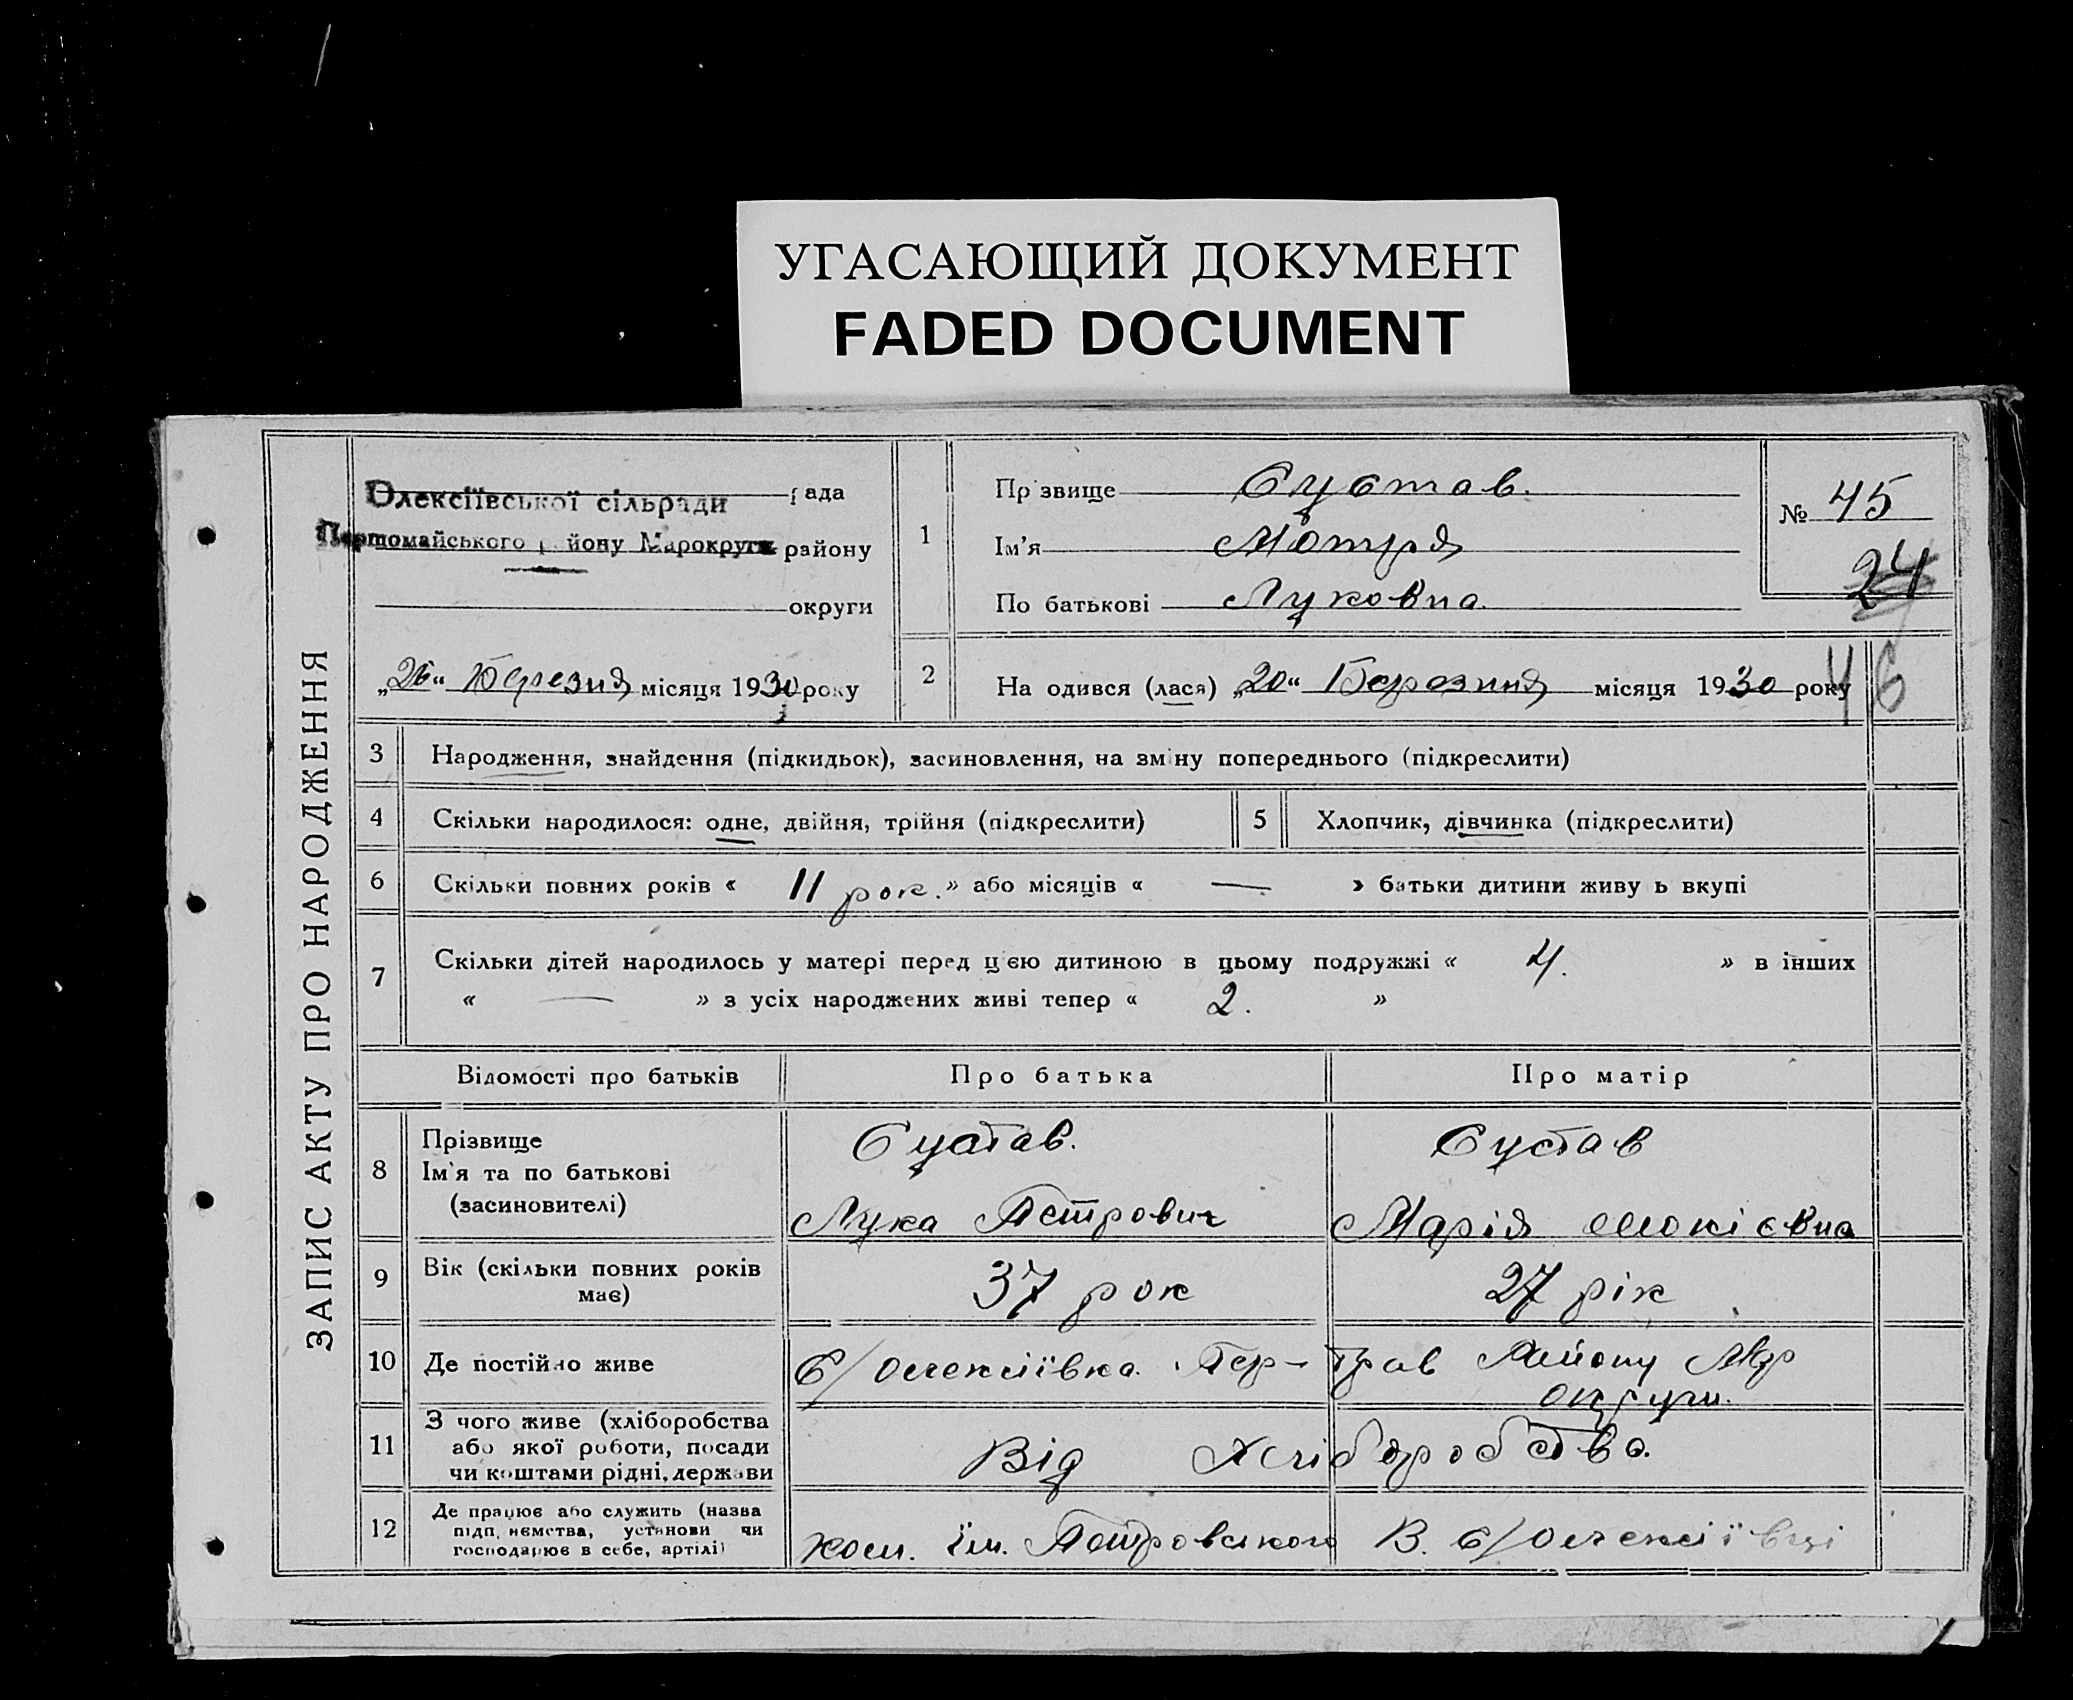 УГАСАЮЩИЙ ДОКУМЕНТ
FADED DOCUMENT
ЗАПИС АКТУ ПРО НАРОДЖЕННЯ
Олексіївської сільради рада
Першомайського району Марокруги району
округи
„26“ Березня місяця 1930 року
1
Прізвище Сустав.
Ім'я Мотря
По батькові Луковна.
№ 45
24
46
2
На одився (лася) „20“ Березння місяця 1930 року
3 Народження, знайдення (підкидьок), засиновлення, на зміну попереднього (підкреслити)
4 Скільки народилося: одне, двійня, трійня (підкреслити) 5 Хлопчик, дівчинка (підкреслити)
6 Скільки повних років « 11 рок. » або місяців « — » батьки дитини живу ь вкупі
7 Скільки дітей народилось у матері перед цією дитиною в цьому подружжі « 4. » в інших
« — » з усіх народжених живі тепер « 2. »
Відомості про батьків Про батька Про матір
8 Прізвище Сустав. Сустав
Ім'я та по батькові
(засиновителі) Лука Петрович Марія Мокієвна
9 Вік (скільки повних років має) 37 рок 27 рік
10 Де постійно живе С/Олексіївка. Пер-Трав Району Мар
округи.
11 З чого живе (хліборобства
або якої роботи, посади
чи коштами рідні, держави Від Хліборобства.
12 Де працює або служить (назва
підп, немства, установи чи
господарює в себе, артілі) Ком. ім. Петровського В. С/Олексіївці